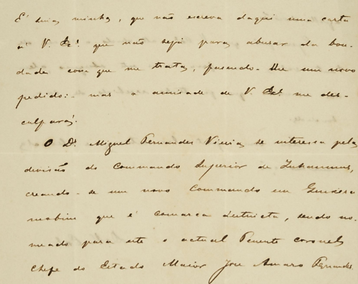 É sina minha, que não escreva daqui uma carta
a V. Exª que não seja para abusar da bon-
dade com que me trata, fazendo-lhe um novo
pedido: mas a amisade de V Exª me des-
culpará.
O Dr Miguel Fernandes Vieira se interessa pela
divisão do Commando Superior de
creando-se um novo Commando em
mobim que é comarca destincta, sendo no-
meado para este o actual Tenente coronel
Chefe do Estado Maior José Amaro Fernande